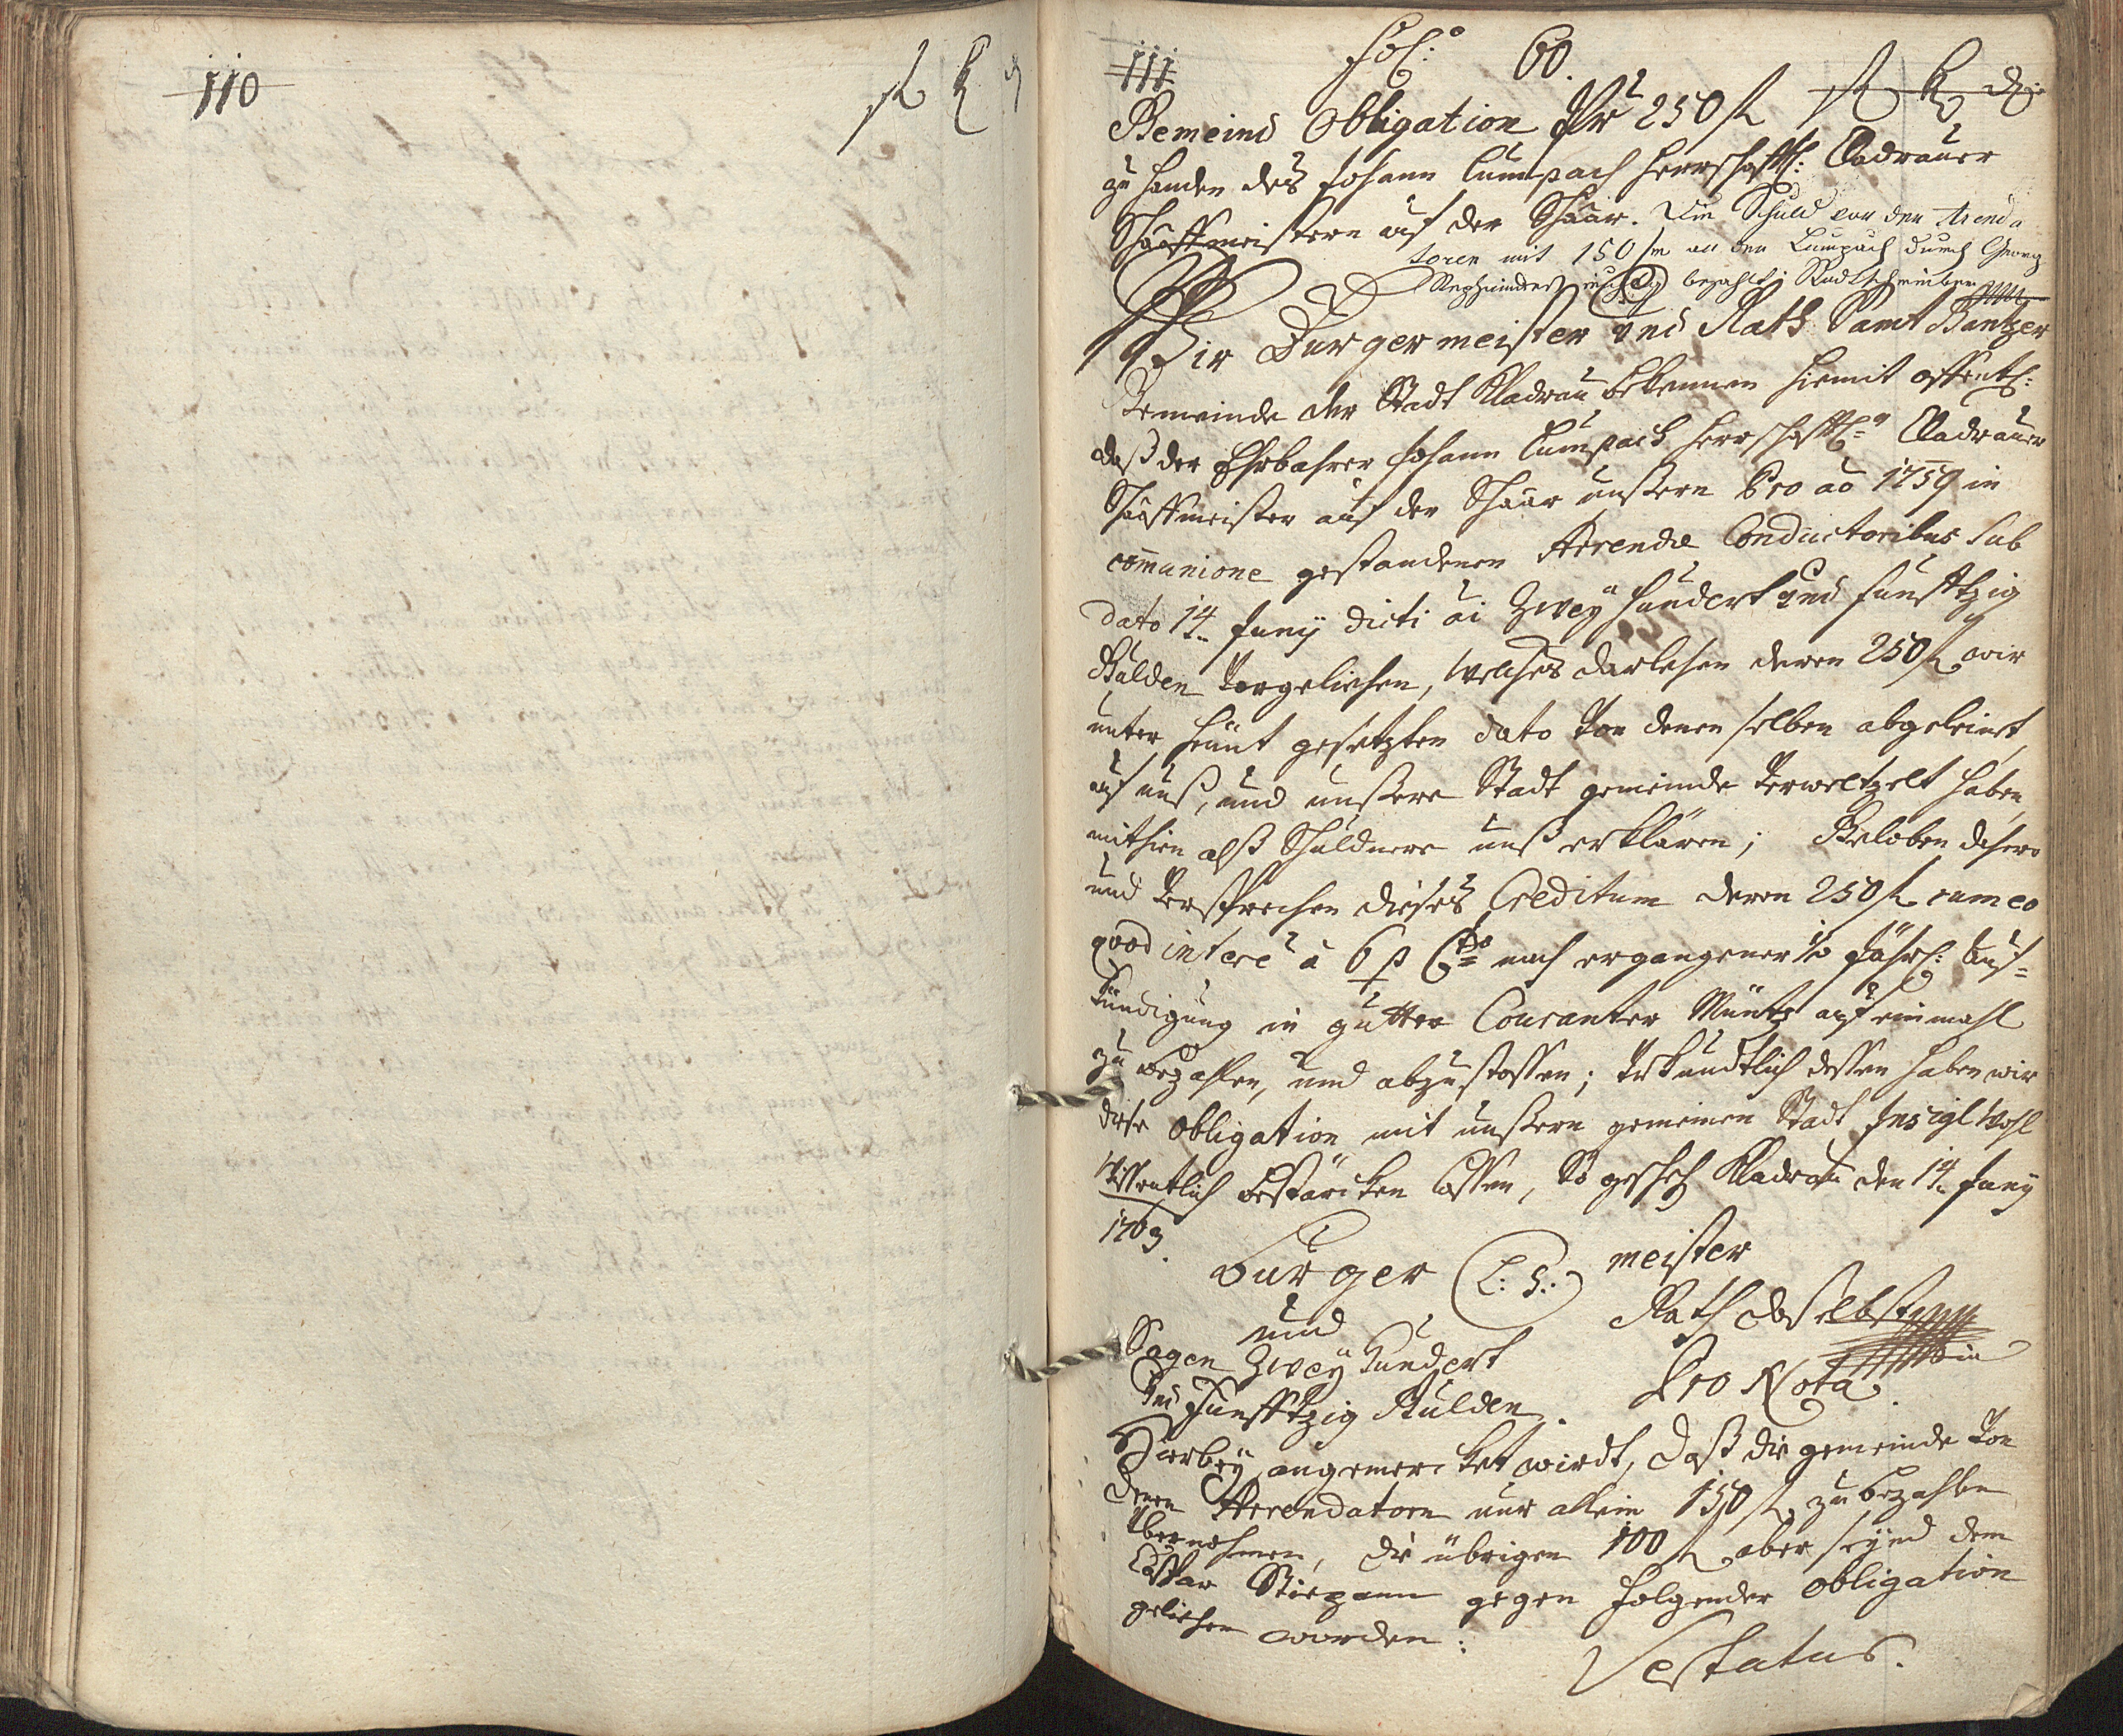 110
fl k d
111
Fol: 60.
fl k d
Gemeind Obligation Pr 250 fl
zu handen des Johann Lumpach herrschaftl: Cladrauer
Schaffmeistern auf der Schaar. Die Schuld von den Arenda
toren mit 150 fl an den Lumpach durch Georg
bezahlt Stadtschreiber
Wir Burgermeister und Rath Samt Gantzer
Gemeinde der Stadt Kladrau bekennen hiemit offentl:
daß der Ehrbahrer Johann Lumpach herrschafftl: Cladrauer
Schaffmeister auf der Schaar unßern Pro aō 1759 in
com̄unione gestandenen Arrendæ Conductoribus sub
dato 14 Juny dicti ai Zwey hundert und funfftzig
Gulden vorgeliehen, welches darlehen deren 250 fl wir
unter heunt gesetzten dato von denen selben abgeleinet,
auf unß, und unßere Stadt gemeinde verweltzelt haben,
mithin alß Schuldnere unß erklären; Geloben dahero
und versprechen dieses Creditum deren 250 fl cum eo
quod intere à 6 p Cto nach ergangener ½ Jährl: Auf-
kündigung in gutter Couranter Müntz auf einmahl
zu bezahlen, und abzustossen; Urkundtlich dessen haben wir
diese Obligation mit unßeren gemeinen Stadt Insigl wohl
wissentlich bestärcken lassen, So geschehen Kladrau den 14 Juny
1763.
Burger (L: S:) meister
und Rath daselbst
Sagen Zwey Hundert
und Funfftzig Gulden. Pro Nota.
Hierbey angemercket wirdt, daß die gemeinde von
denen Arrendatorn nur allein 150 fl zu bezahlen
übernohmen, die übrigen 100 fl aber seynd dem
gegen folgender Obligation
geliehen worden: